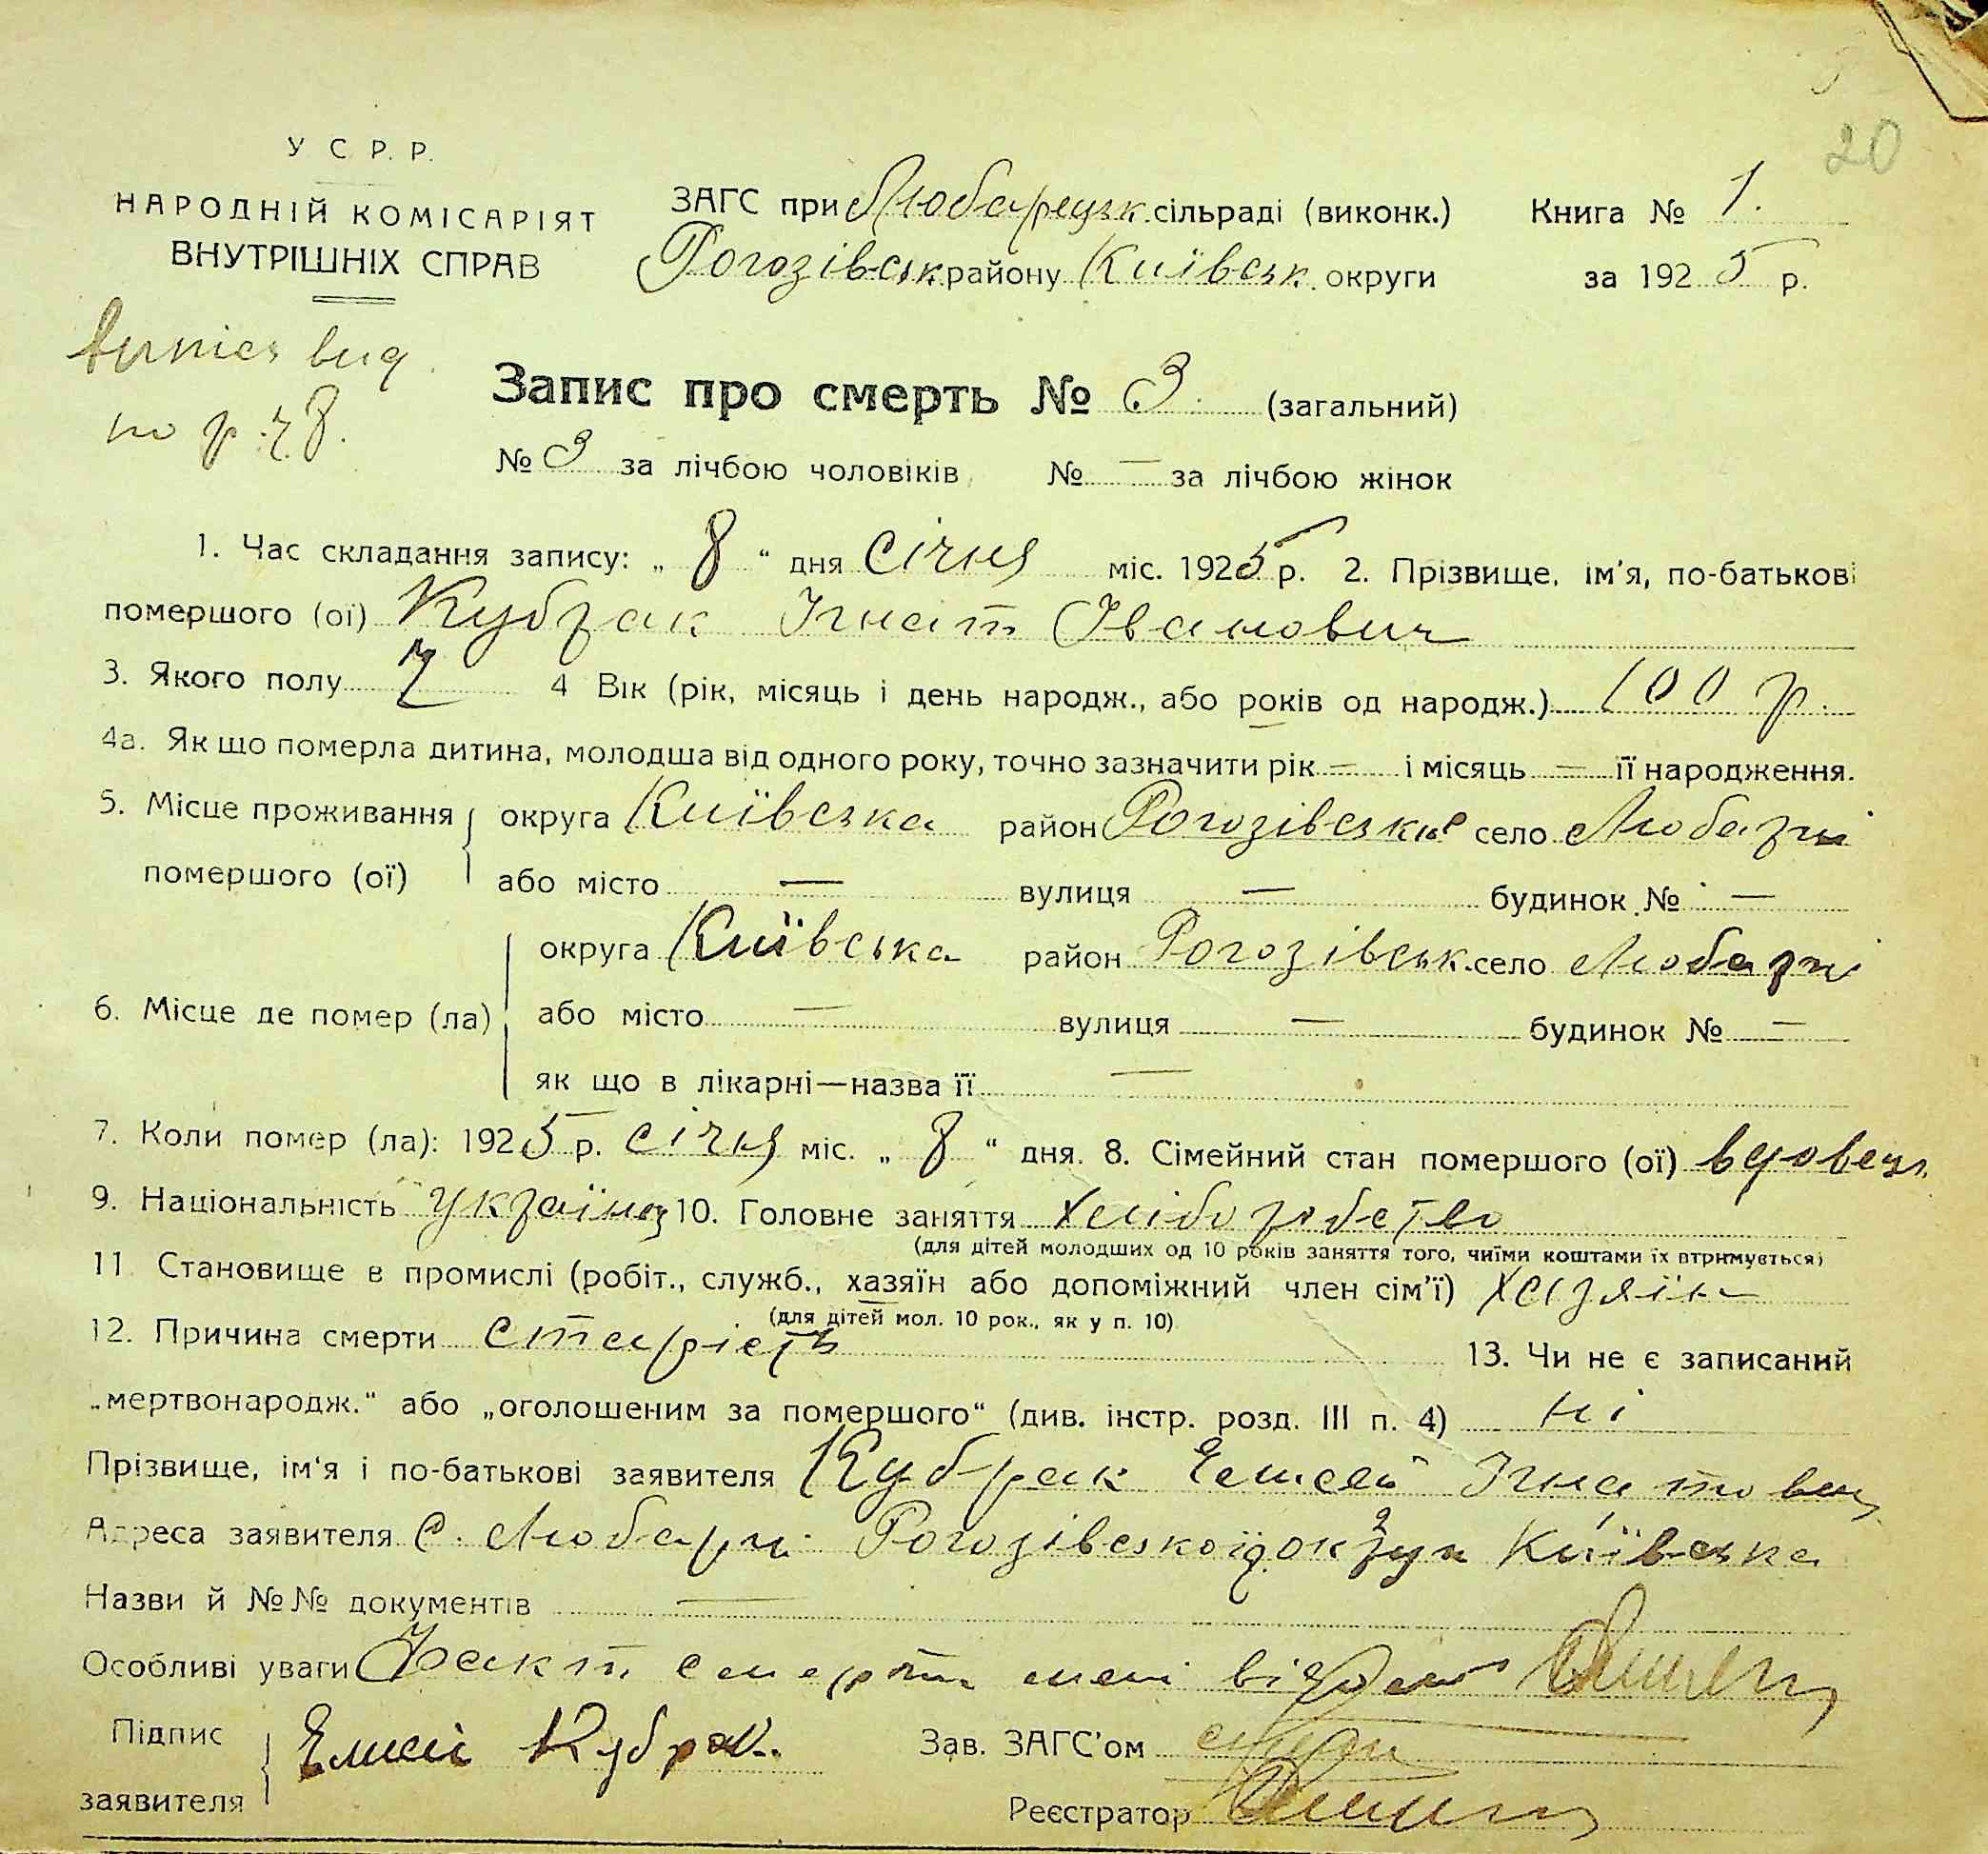 20
У С. Р. Р.
НАРОДНІЙ КОМІСАРІЯТ
ВНУТРІШНІХ СПРАВ
ЗАГС при Любарецьк. сільраді (виконк.) Книга № 1.
Рогозівськ району Київськ. округи за 1925 р.
Запис про смерть № 3 (загальний)
№ 3 за лічбою чоловіків № — за лічбою жінок
1. Час складання запису: „ 8 “ дня січня міс. 1925 р. 2. Прізвище, ім'я, по-батькові
помершого (ої) Кубрак Ігнат Іванович
3. Якого полу Ч 4 Вік (рік, місяць і день народж., або років од народж.) 100 р.
4а. Як що померла дитина, молодша від одного року, точно зазначити рік — і місяць — її народження.
5. Місце проживання помершого (ої) округа Київська район Рогозівськ село Любарці
або місто — вулиця — будинок № —
6. Місце де помер (ла) округа Київська район Рогозівськ. село Любарці
або місто — вулиця — будинок № —
як що в лікарні—назва її —
7. Коли помер (ла): 1925 р. січня міс. „ 8 “ дня. 8. Сімейний стан помершого (ої) вдовець
9. Національність україноц 10. Головне заняття хліборобство
(для дітей молодших од 10 років заняття того, чиїми коштами їх втримується)
11 Становище в промислі (робіт., служб., хазяїн або допоміжний член сім'ї) хазяїн
(для дітей мол. 10 рок., як у п. 10)
12. Причина смерти старість 13. Чи не є записаний
„мертвонародж.“ або „оголошеним за помершого“ (див. інстр. розд. III п. 4) ні
Прізвище, ім'я і по-батькові заявителя Кубрак Елисей Ігнатович
Адреса заявителя С. Любарці Рогозівського р. округи Київська
Назви й №№ документів —
Особливі уваги Факт смерти мені відом
Підпис заявителя Елисей Кубрак Зав. ЗАГС'ом
Реєстратор